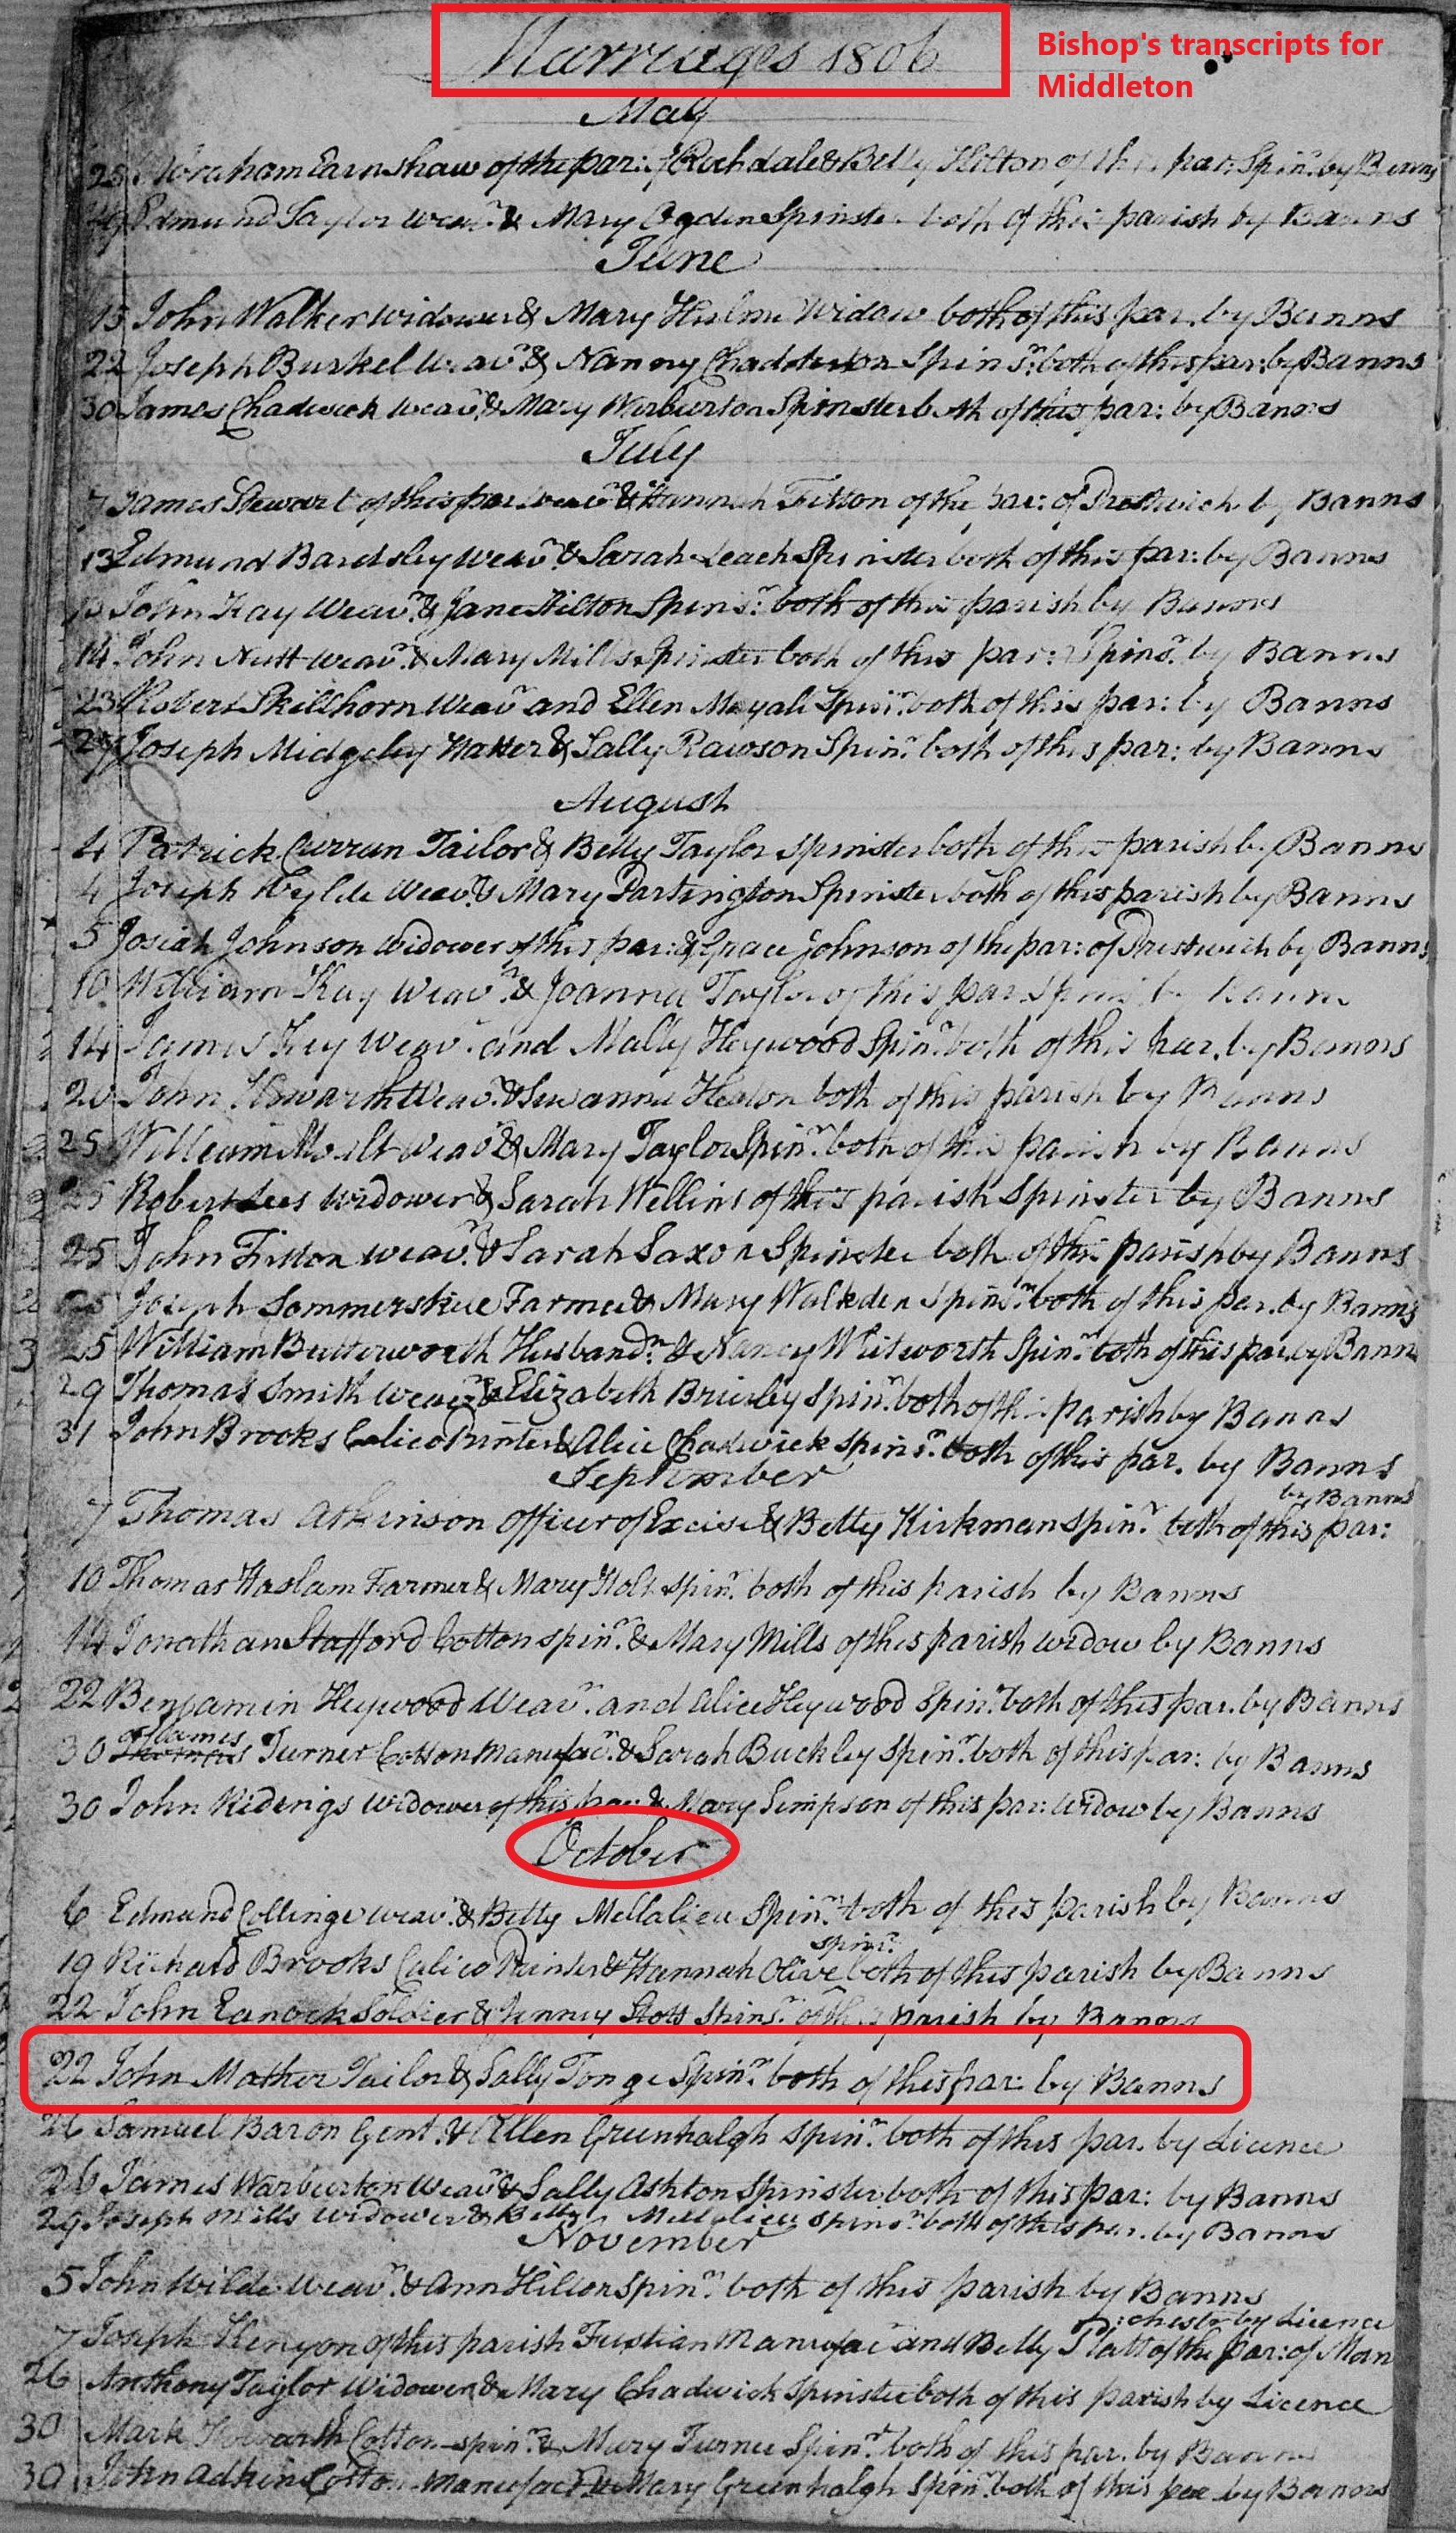 Marriages 1806
Bishop's transcripts for
Middleton
May
28 Abraham Earnshaw of the par: of Rochdale & Betty Hilton of this par. Spinr. by Banns
29 Edmund Taylor Weavr. & Mary Ogden Spinster both of this parish by Banns
June
15 John Walker Widower & Mary Hulme Widow both of this par. by Banns
22 Joseph Buckel Weavr. & Nanny Chadderton Spinsr. both of this par: by Banns
30 James Chadwick Weavr. & Mary Warburton Spinster both of this par: by Banns
July
7 James Stewart of this par. Weavr. & Hannah Fitton of the par: of Prestwich by Banns
13 Edmund Bardsley Weavr. & Sarah Leach Spinster both of this par: by Banns
13 John Kay Weavr. & Jane Hilton Spinsr: both of this parish by Banns
14 John Nutt Weavr. & Mary Mills Spinster both of this par: Spinsr. by Banns
23 Robert Skillhorn Weavr and Ellen Mayall Spinr. both of this par: by Banns
27 Joseph Midgeley Hatter & Sally Rawson Spinr. both of this par: by Banns
August
4 Patrick Curran Tailor & Betty Taylor Spinster both of this parish by Banns
4 Joseph Wylde Weavr. & Mary Partington Spinster both of this parish by Banns
5 Josiah Johnson Widower of this par: & Grace Johnson of the par: of Prestwich by Banns
10 William Kay Weavr. & Joanna Taylor of this par Spinsr by Banns
14 James Key Weavr. and Mally Heywood Spinr. both of this par. by Banns
20 John Howarth Weavr. & Susanna Heaton both of this parish by Banns
25 William Weavr & Mary Taylor Spinr. both of this parish by Banns
25 Robert Lees Widower & Sarah Wellins of this parish Spinster by Banns
25 John Fitton Weavr. & Sarah Saxon Spinster both of this parish by Banns
25 Joseph Sommerskill Farmer & Mary Walkden Spinsr. both of this par. by Banns
25 William Butterworth Husbandn. & Nancy Whitworth Spinr. both of this par. by Banns
29 Thomas Smith Weavr. & Elizabeth Brierley Spinr. both of this parish by Banns
31 John Brooks Calico Printer & Alice Chadwick Spinsr. both of this par. by Banns
September
by Banns
7 Thomas Atkinson Officer of Excise & Betty Kirkman Spinr. both of this par:
10 Thomas Haslam Farmer & Mary Holt Spinr. both of this parish by Banns
14 Jonathan Stafford Cotton spinr. & Mary Mills of this parish widow by Banns
22 Benjamin Heywood Weavr. and Alice Heywood Spinr. both of this par. by Banns
James
30 Thomas Turner Cotton Manufacr. & Sarah Buckley Spinr. both of this par: by Banns
30 John Ridings Widower of this par: & Mary Simpson of this par: Widow by Banns
October
6 Edmund Collinge Weavr. & Betty Mellalieu Spinr. both of this parish by Banns
spinsr.
19 Richard Brooks Calico Printer & Hannah Olive both of this parish by Banns
22 John Soldier & Jenney Stott Spinsr. of this parish by Banns
22 John Mather Tailor & Sally Tonge Spinr. both of this par: by Banns
26 Samuel Baron Gent. & Ellen Greenhalgh Spinr. both of this par. by Licence
26 James Warburton Weavr & Sally Ashton Spinster both of this par: by Banns
29 Joseph Mills Widower & Betty Mellalieu Spinsr. both of this par. by Banns
November
5 John Wilde Weavr. & Ann Hilton Spinr. both of this parish by Banns
:chester by Licence
7 Joseph Kenyon of this parish Fustian Manufacr and Betty Platt of the par: of Man
26 Anthony Taylor Widower & Mary Chadwick Spinster both of this parish by Licence
30 Mark Howarth Cotton spinr. & Mary Turner Spinr. both of this par. by Banns
30 John Adkin Cotton Manufacr. & Mary Greenhalgh Spinr. both of this par by Banns